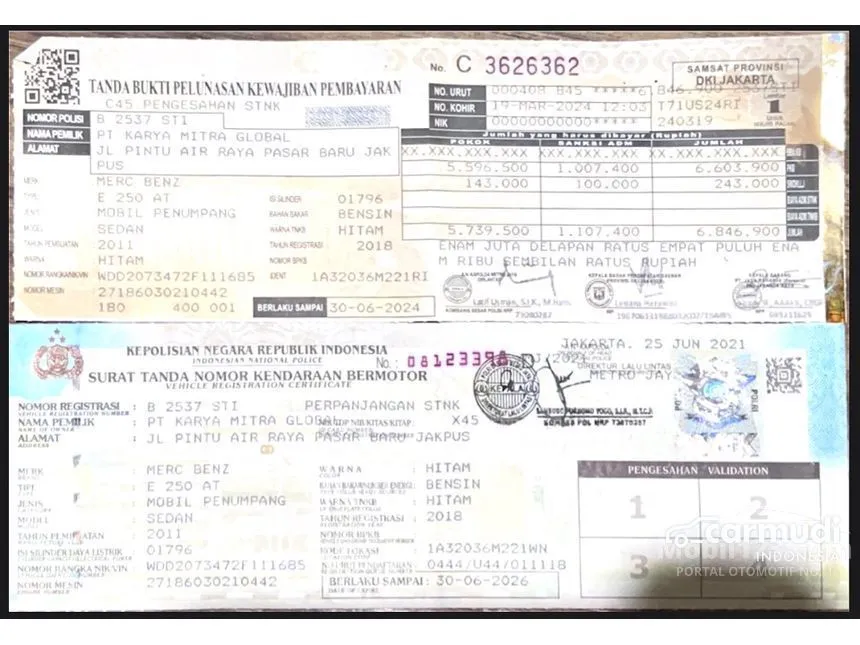 No. C 3626362
SAMSAT PROVINSI
DKI JAKARTA
TANDA BUKTI PELUNASAN KEWAJIBAN PEMBAYARAN
C45 PENGESAHAN STNK
NO. URUT 000408 845 *****6.846.900
NO. KOHIR 19-MAR-2024 12:03 T71US24RI
NIK 0000000000000000 240319
1
NOMOR POLISI B 2537 STI
NAMA PEMILIK PT KARYA MITRA GLOBAL
ALAMAT JL PINTU AIR RAYA PASAR BARU JAK
PUS
Jumlah yang harus dibayar (Rupiah)
POKOK SANKSI ADM JUMLAH
XX.XXX.XXX.XXX XX.XXX.XXX.XXX XX.XXX.XXX.XXX
5.596.500 1.007.400 6.603.900 PKB
143.000 100.000 243.000 SWDKLLJ
5.739.500 1.107.400 6.846.900 JUMLAH
ENAM JUTA DELAPAN RATUS EMPAT PULUH ENA
M RIBU SEMBILAN RATUS RUPIAH
MERK MERC BENZ
TYPE E 250 AT ISI SILINDER 01796
JENIS MOBIL PENUMPANG BAHAN BAKAR BENSIN
MODEL SEDAN WARNA TNKB HITAM
TAHUN PEMBUATAN 2011 TAHUN REGISTRASI 2018
WARNA HITAM NOMOR BPKB
NOMOR RANGKA/NIK/VIN WDD2073472F111685 IDENT 1A32036M221RI
NOMOR MESIN 27186030210442
180 400 001 BERLAKU SAMPAI 30-06-2024
KEPOLISIAN NEGARA REPUBLIK INDONESIA
INDONESIAN NATIONAL POLICE
No.: 08123398
SURAT TANDA NOMOR KENDARAAN BERMOTOR
VEHICLE REGISTRATION CERTIFICATE
JAKARTA. 25 JUN 2021
DIREKTUR LALU LINTAS
METRO JAY
KEPALA
NOMOR REGISTRASI B 2537 STI PERPANJANGAN STNK
VEHICLE REGISTRATION NUMBER
NAMA PEMILIK : PT KARYA MITRA GLOBAL X45
NAME OF OWNER
ALAMAT : JL PINTU AIR RAYA PASAR BARU JAKPUS
ADDRESS
MERK : MERC BENZ WARNA : HITAM
TIPE : E 250 AT BENSIN
JENIS : MOBIL PENUMPANG WARNA TNKB : HITAM
MODEL : SEDAN TAHUN REGISTRASI : 2018
TAHUN PEMBUATAN : 2011 NOMOR BPKB
ISI SILINDER/DAYA LISTRIK 01796 KODE LOKASI : 1A32036M221WN
NOMOR RANGKA/NIK/VIN WDD2073472F111685 0444/U44/011118
NOMOR MESIN 27186030210442 BERLAKU SAMPAI : 30-06-2026
PENGESAHAN VALIDATION
1 2
3
carmudi
INDONESIA
PORTAL OTOMOTIF NO.